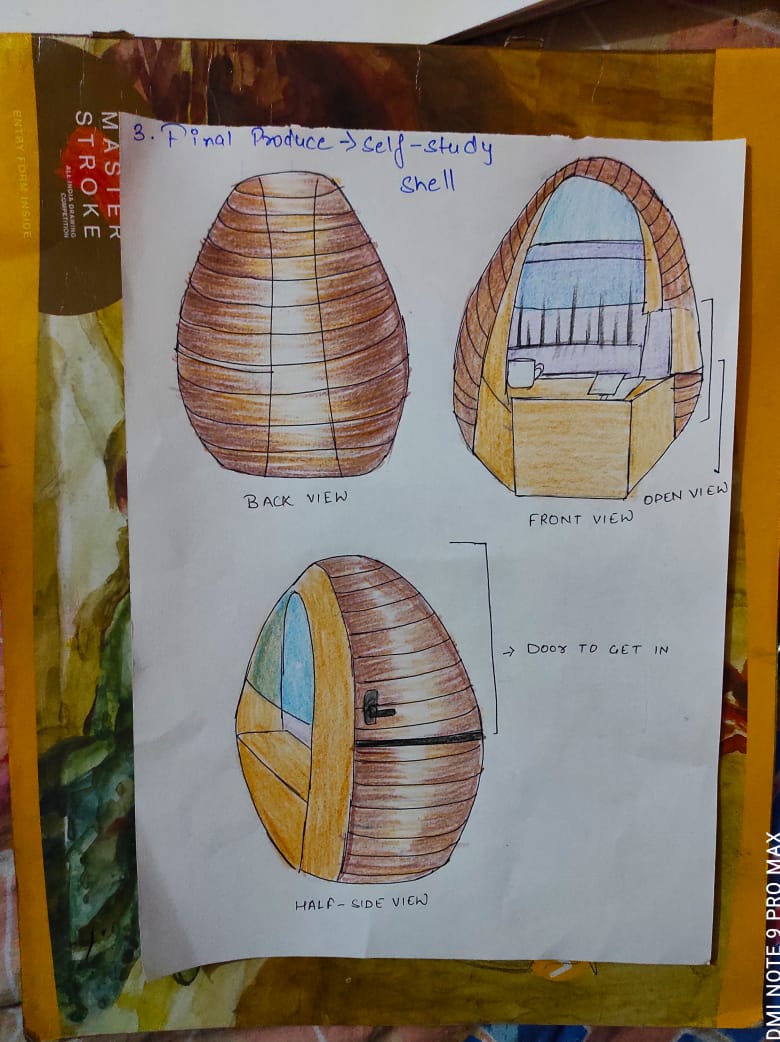 MASTER
STROKE
ALL INDIA DRAWING
COMPETITION
ENTRY FORM INSIDE
3. Final Produce → Self-study
shell
BACK VIEW
FRONT VIEW
OPEN VIEW
→ Door TO GET IN
HALF-SIDE VIEW
DMI NOTE 9 PRO MAX